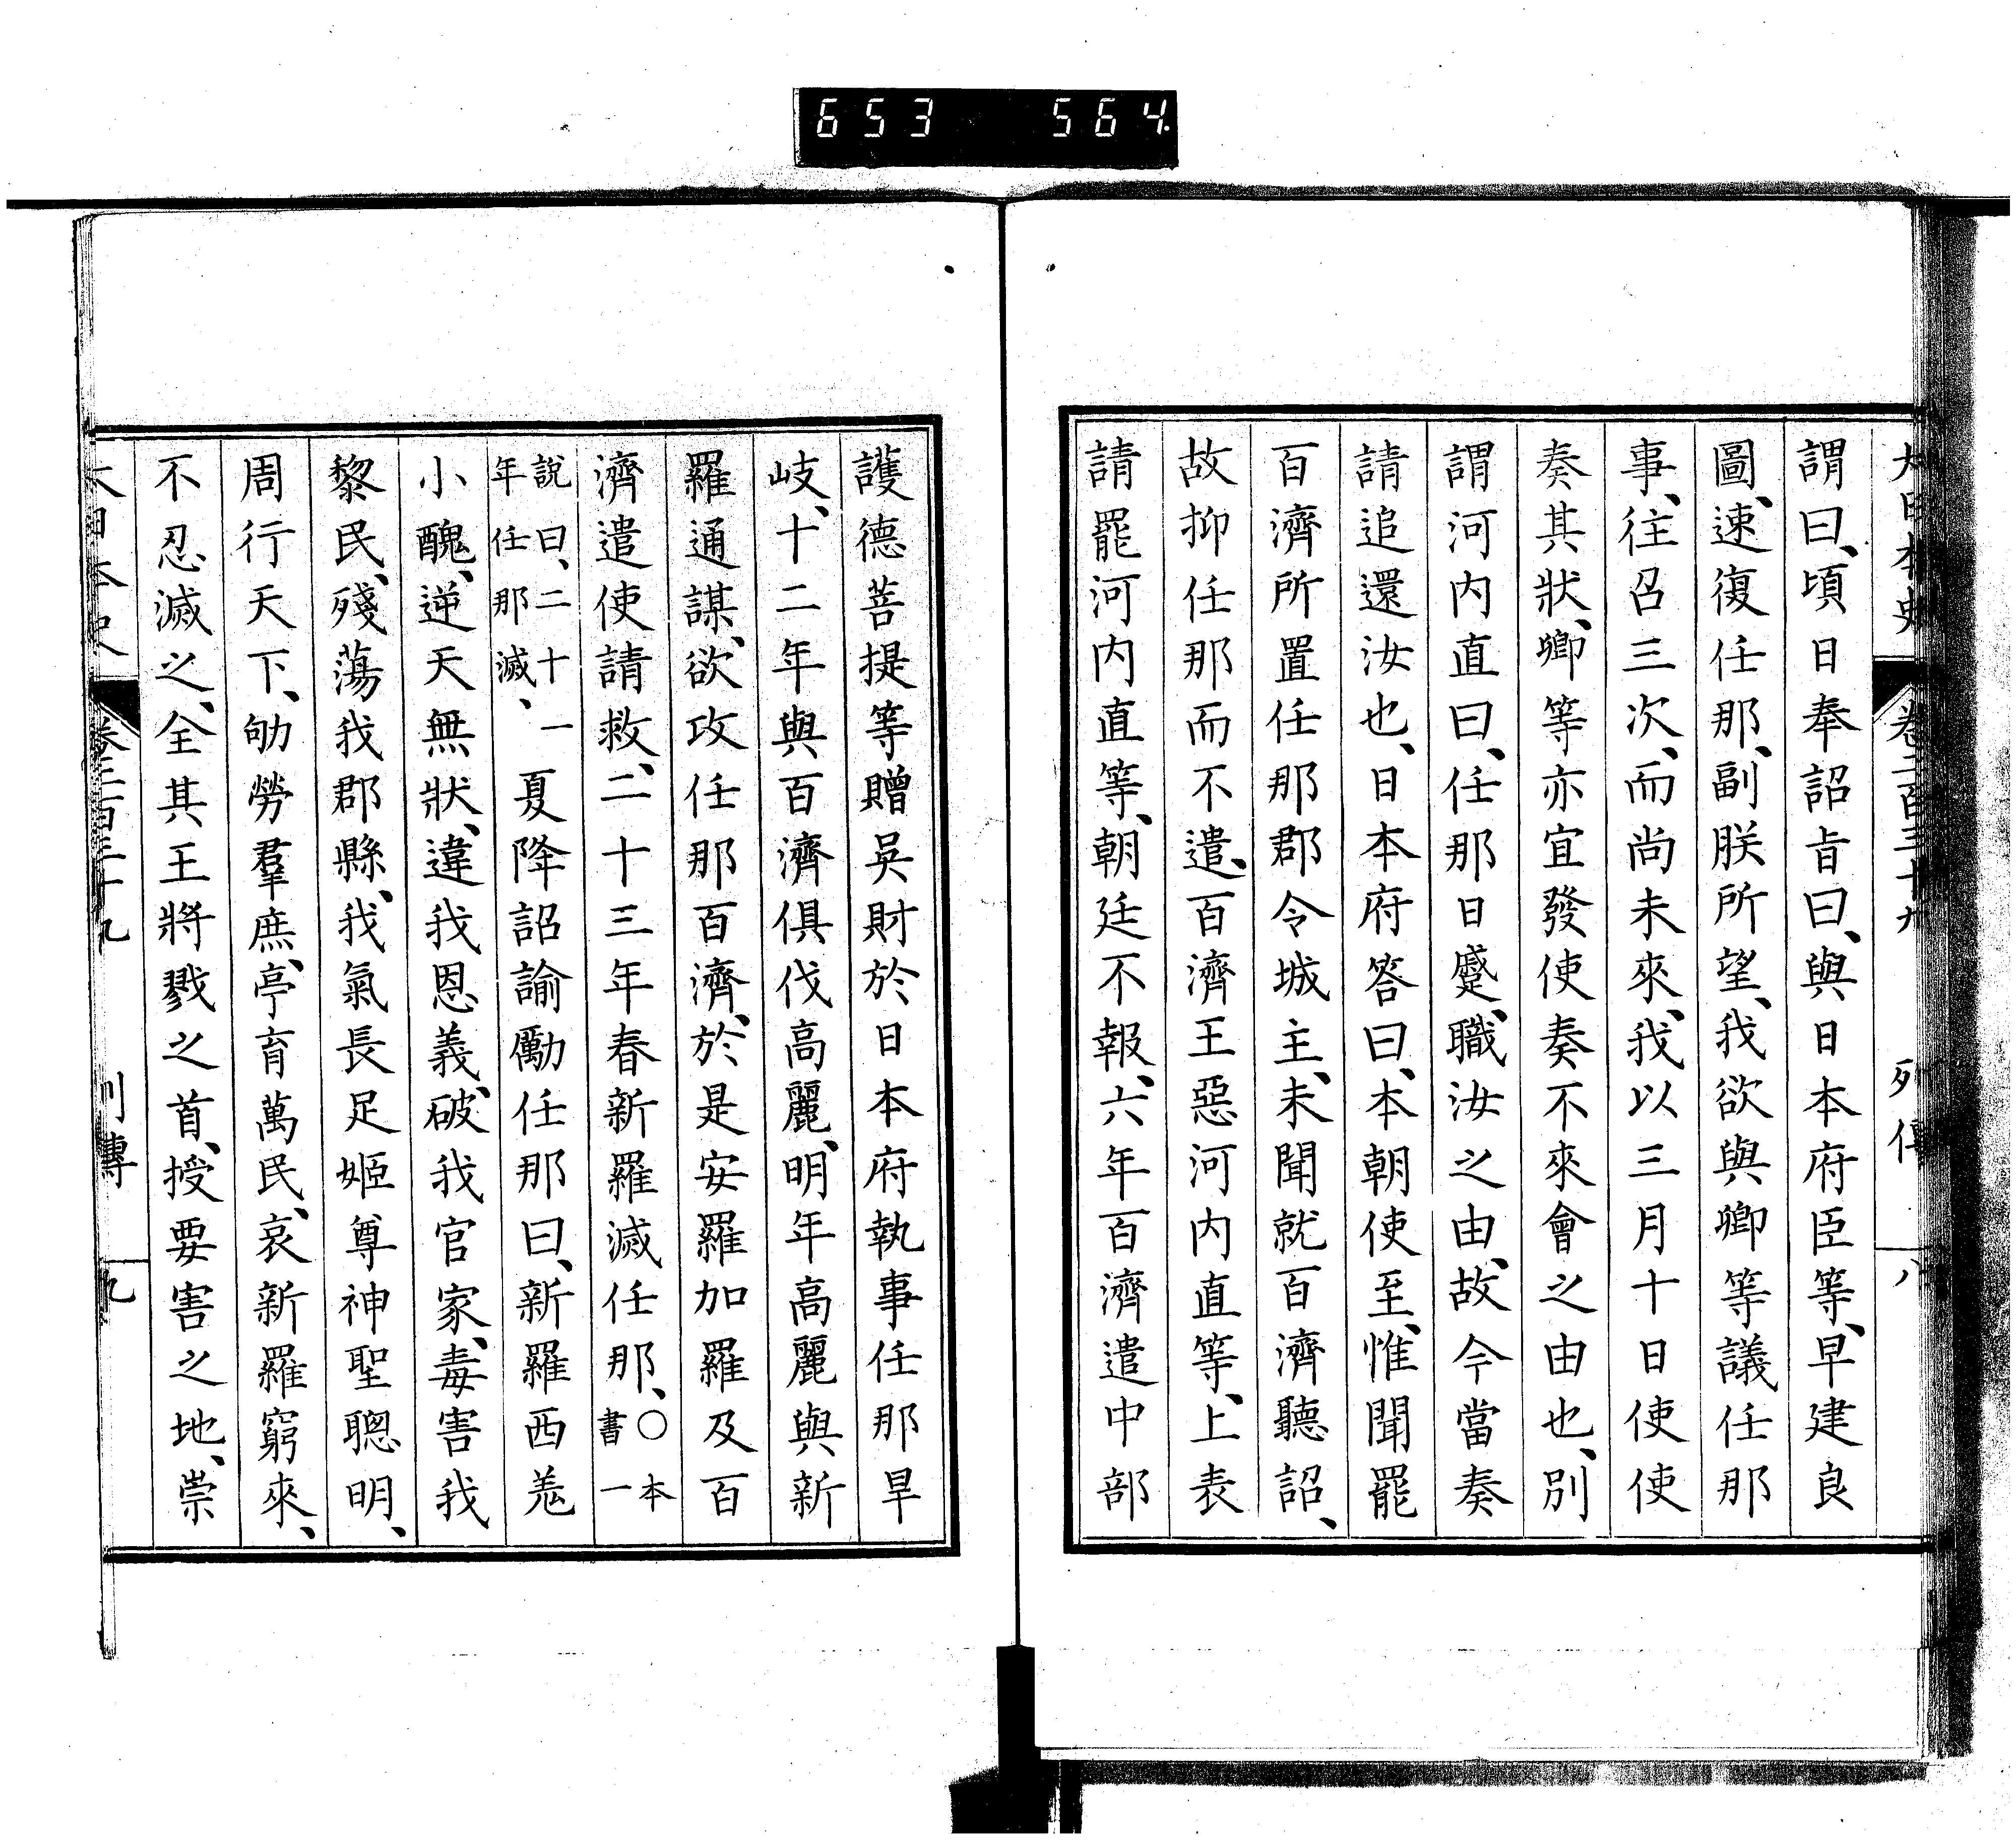 653 564.
大日本史 卷二百三十九 列傳 八
謂曰、頃日奉詔旨曰、與日本府臣等、早建良
圖、速復任那、副朕所望、我欲與卿等議任那
事、往召三次、而尚未來、我以三月十日使使
奏其狀、卿等亦宜發使奏不來會之由也、別
謂河内直曰、任那日蹙、職汝之由、故今當奏
請追還汝也、日本府答曰、本朝使至、惟聞罷
百濟所置任那郡令城主、未聞就百濟聽詔、
故抑任那而不遣、百濟王惡河内直等、上表
請罷河内直等、朝廷不報、六年百濟遣中部
護德菩提等贈吳財於日本府執事任那旱
岐、十二年與百濟俱伐高麗、明年高麗與新
羅通謀、欲攻任那百濟、於是安羅加羅及百
濟遣使請救、二十三年春新羅滅任那、○本書一
說曰、二十一年任那滅、夏降詔諭勵任那曰、新羅西羌
小醜、逆天無狀、違我恩義、破我官家、毒害我
黎民、殘蕩我郡縣、我氣長足姬尊神聖聰明、
周行天下、劬勞羣庶、亭育萬民、哀新羅窮來、
不忍滅之、全其王將戮之首、授要害之地、崇
大日本史 卷二百三十九 列傳 九